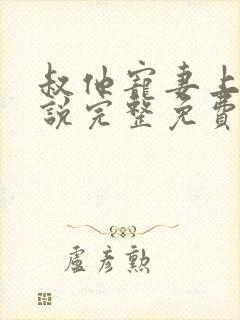 叔他寵妻上
說完整免費
盧彥勲